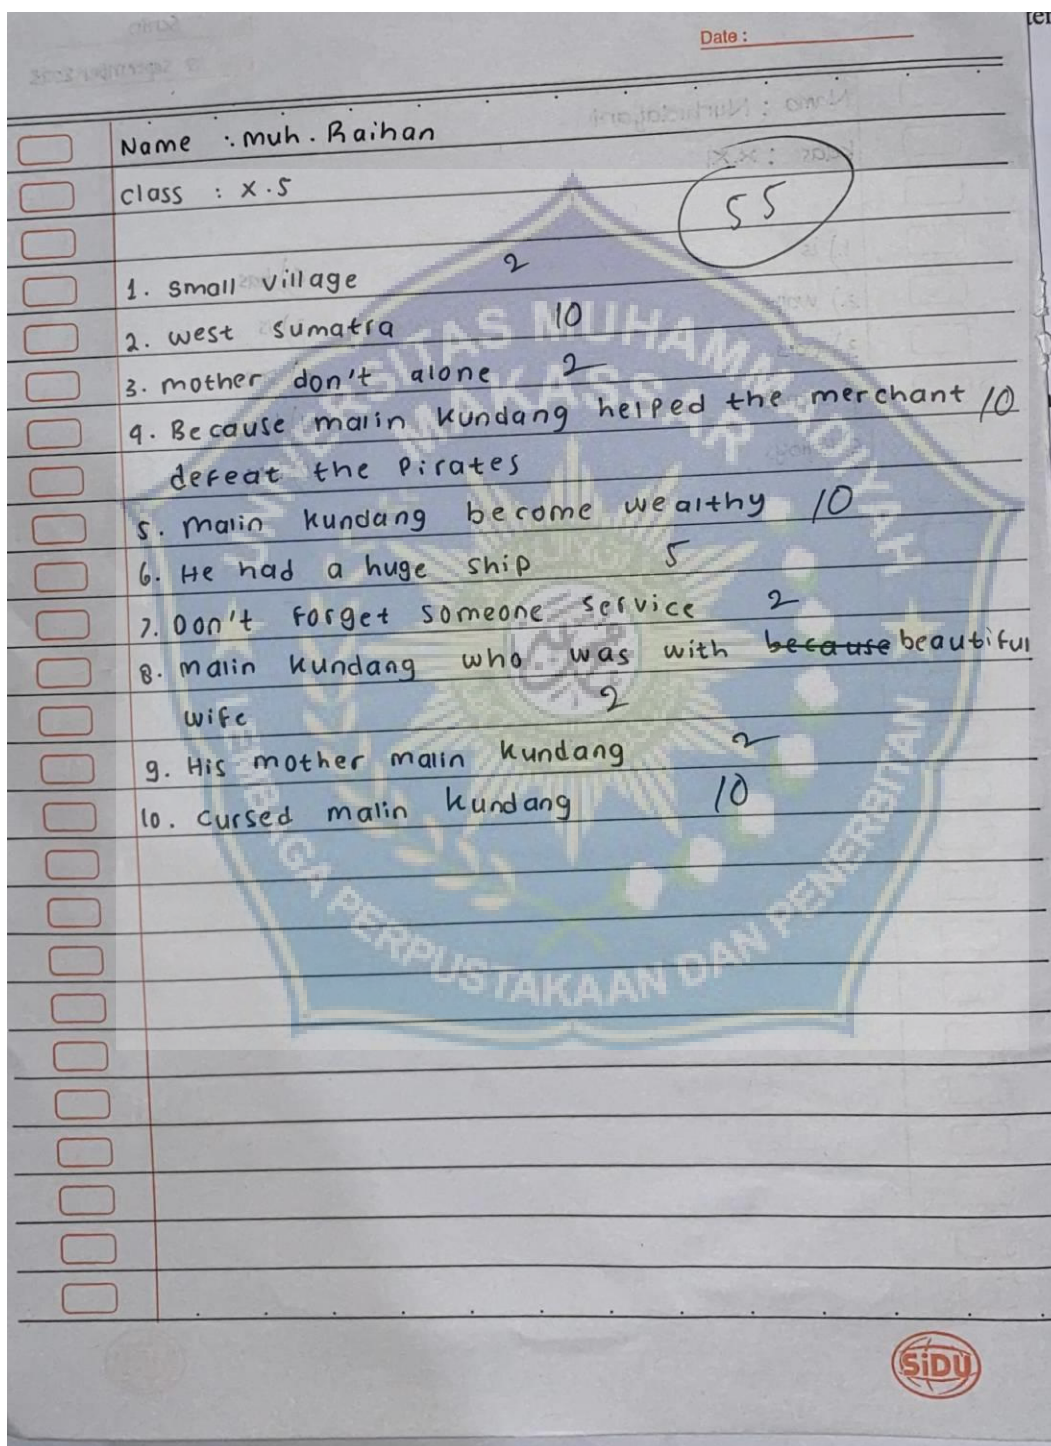 ter
Date :
Name : muh. Raihan
class : x.5
55
1. small village 2
2. west sumatra 10
3. mother don't alone 2
4. Because malin kundang helped the merchant 10
defeat the Pirates
5. malin kundang become wealthy 10
6. He had a huge ship 5
7. Don't forget someone service 2
8. malin kundang who was with because beautiful
wife 2
9. His mother malin kundang 2
10. cursed malin kundang 10
UNIVERSITAS MUHAMMADIYAH
MAKASSAR
LEMBAGA PERPUSTAKAAN DAN PENERBITAN
SiDU